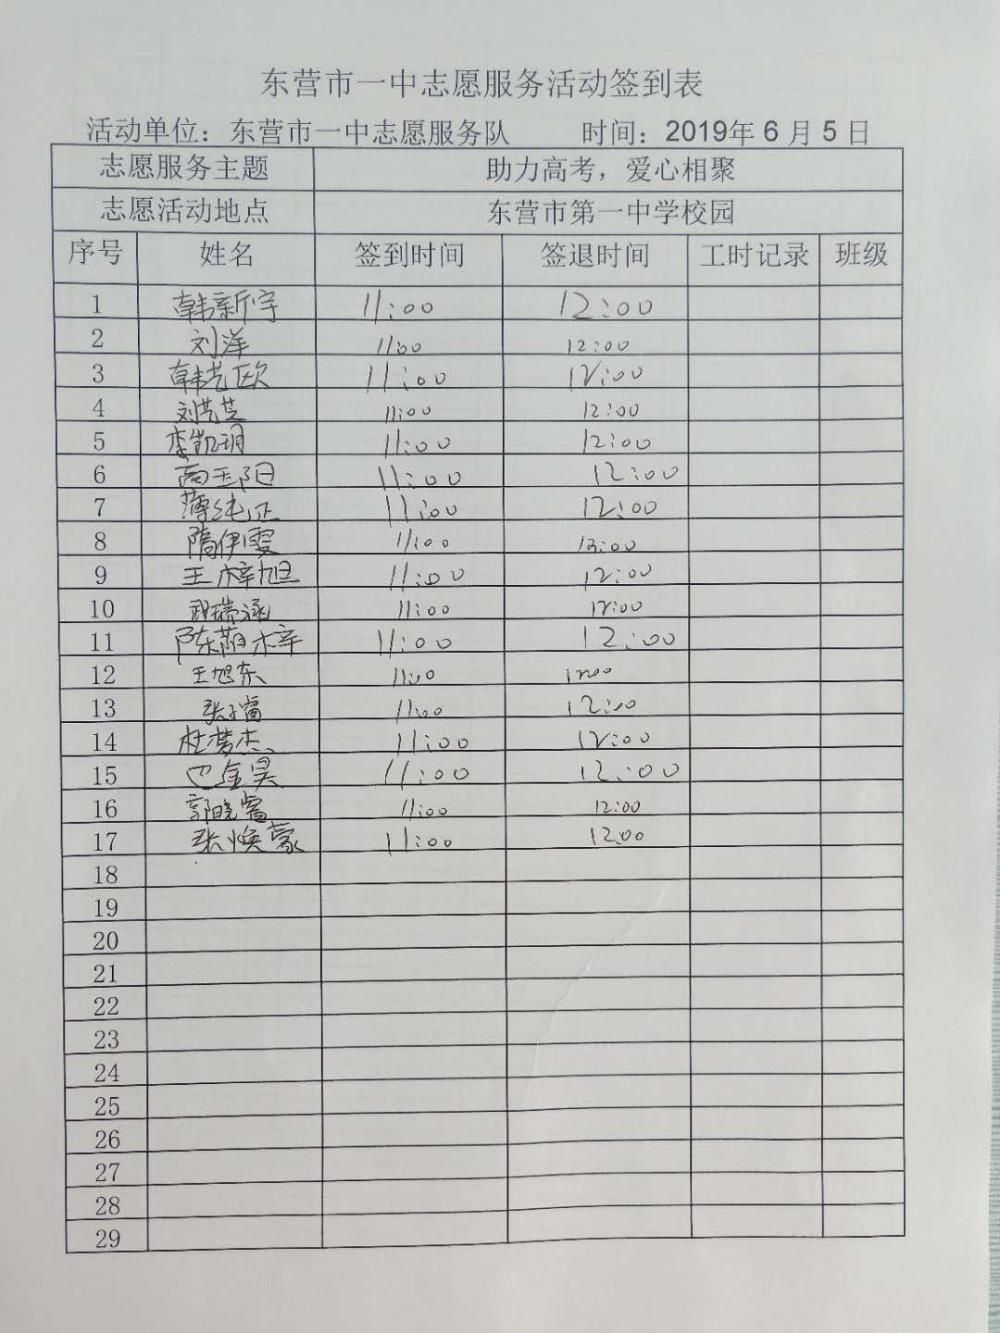 东营市一中志愿服务活动签到表
活动单位：东营市一中志愿服务队 时间：2019年6月5日
志愿服务主题 助力高考，爱心相聚
志愿活动地点 东营市第一中学校园
序号 姓名 签到时间 签退时间 工时记录 班级
1 韩新宇 11:00 12:00
2 刘洋 11:00 12:00
3 韩艺欧 11:00 12:00
4 刘芸芝 11:00 12:00
5 李凯玥 11:00 12:00
6 高玉阳 11:00 12:00
7 薄纯正 11:00 12:00
8 隋伊雯 11:00 12:00
9 王梓旭 11:00 12:00
10 武瑞涵 11:00 12:00
11 陈蔚梓 11:00 12:00
12 王旭东 11:00 12:00
13 张子富 11:00 12:00
14 杜梦杰 11:00 12:00
15 巴金昊 11:00 12:00
16 郭晓富 11:00 12:00
17 张焕蒙 11:00 12:00
18
19
20
21
22
23
24
25
26
27
28
29